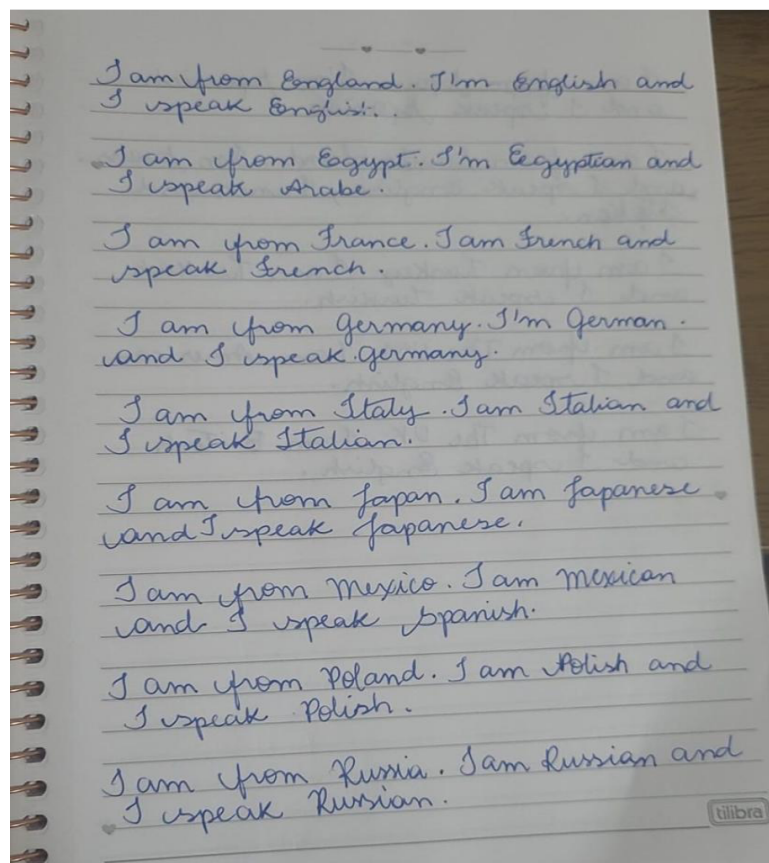 I am from England. I'm English and
I speak English.
I am from Eegypt. I'm Eegyptian and
I speak Arabe.
I am from France. I am French and
speak French.
I am from Germany. I'm German.
and I speak germany.
I am from Italy. I am Italian and
I speak Italian.
I am from Japan. I am Japanese
and I speak Japanese.
I am from Mexico. I am Mexican
and I speak Spanish.
I am from Poland. I am Polish and
I speak Polish.
I am from Russia. I am Russian and
I speak Russian.
tilibra